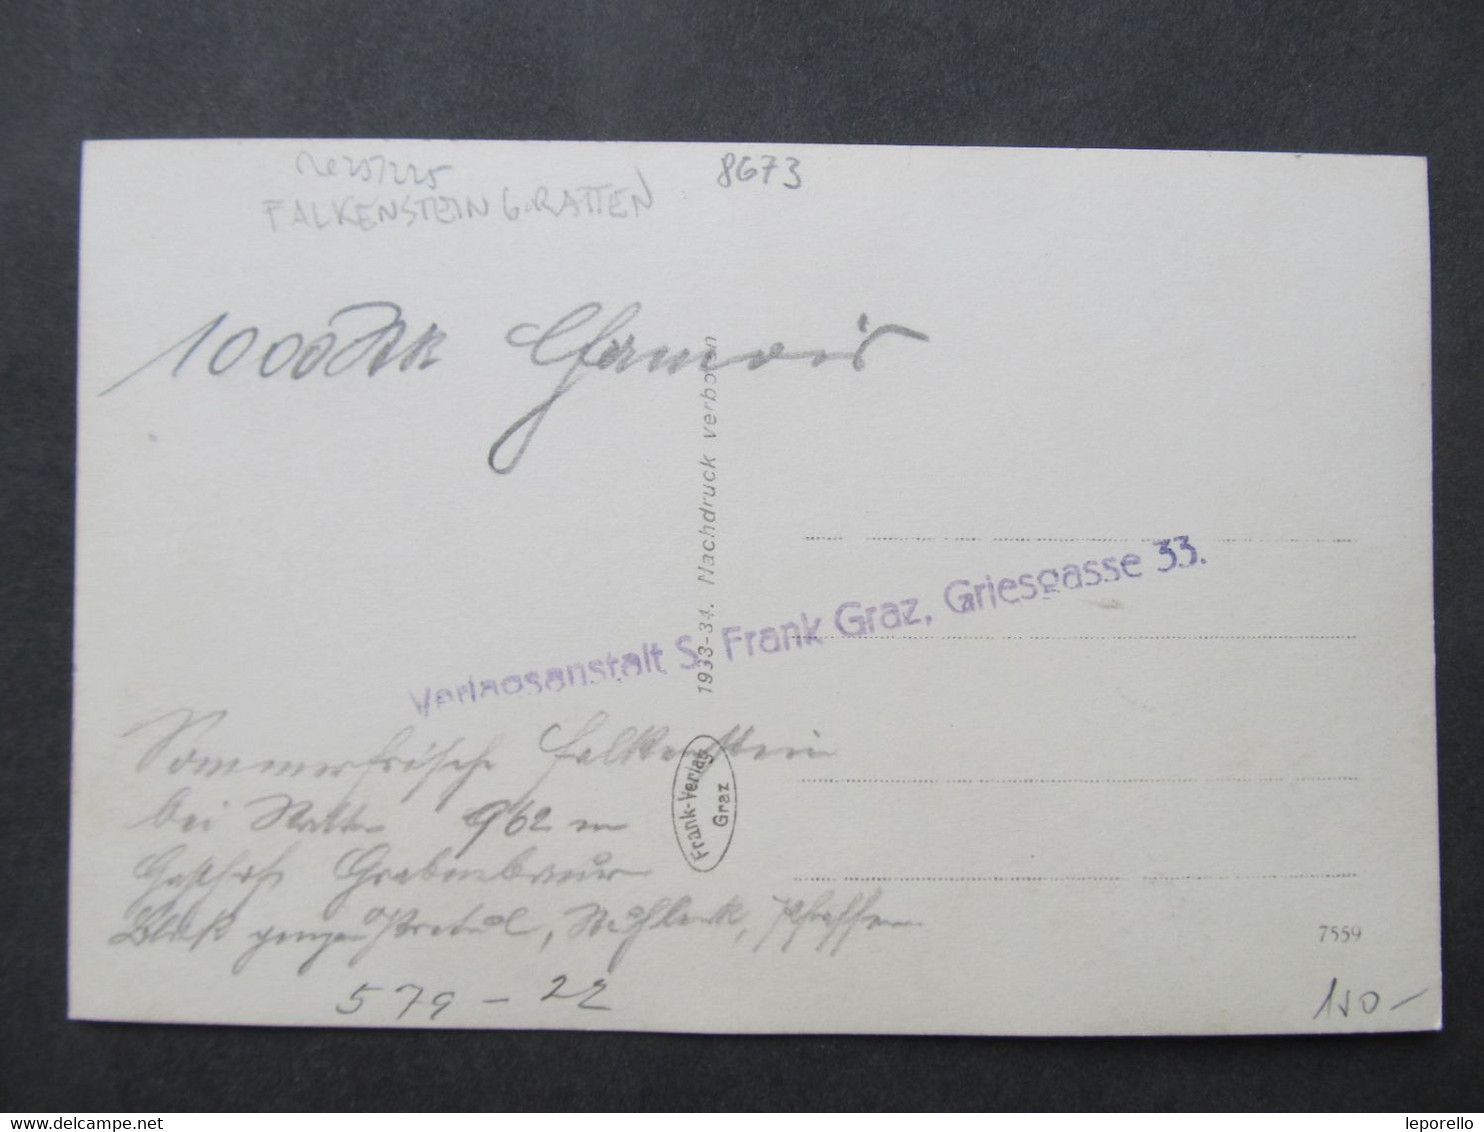 8673
FALKENSTEIN b. RATTEN
1000 Stk Chamois
1933-34. Nachdruck verboten
Verlagsanstalt S. Frank Graz, Griesgasse 33.
Sommerfrische Falkenstein
bei Ratten 962 m
Frank-Verlag
Graz
Gasthof Grabenbauer
Blick gegen Pretul, Pfaffen
7559
579-22
150-
leporello
delcampe.net